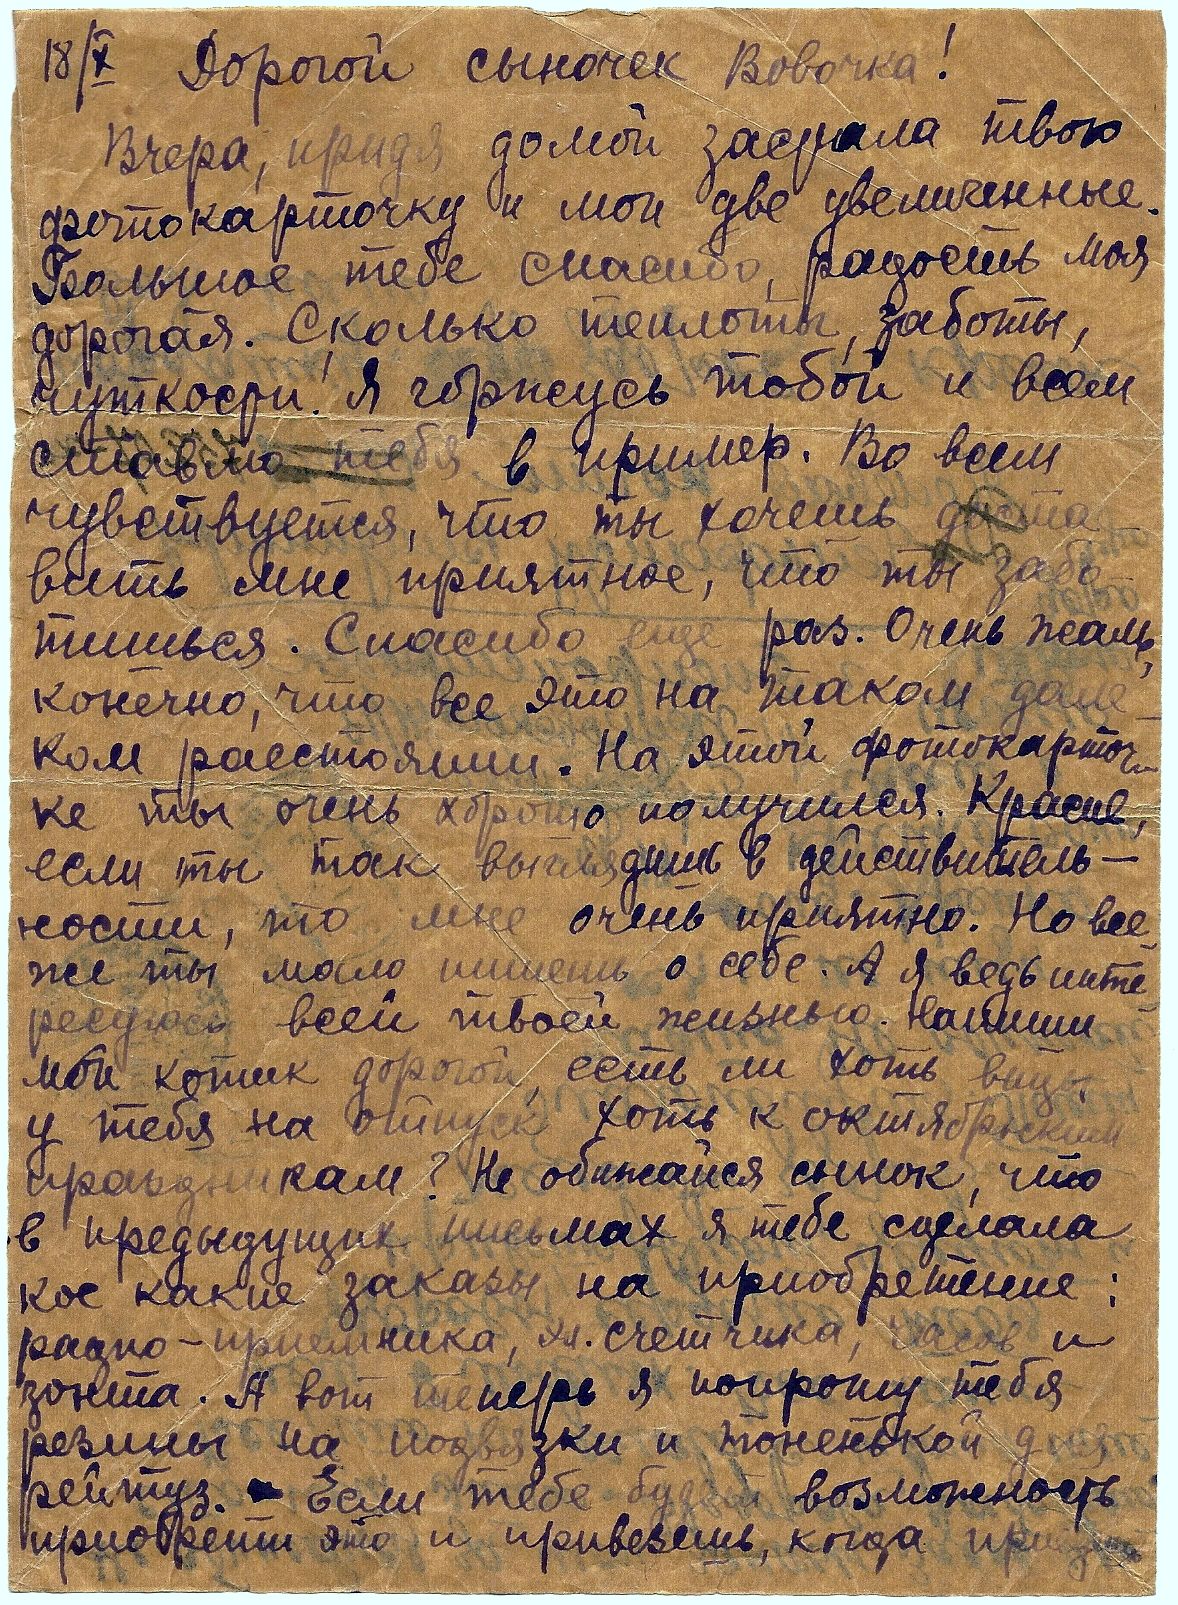 18/X Дорогой сыночек Вовочка!
Вчера, придя домой застала твою
фотокарточку и мои две увеличенные.
Большое тебе спасибо, радость моя
дорогая. Сколько теплоты, заботы,
чуткости! Я горжусь тобой и всем
ставлю тебя в пример. Во всем
чувствуется, что ты хочешь доста-
вить мне приятное, что ты забо-
тишься. Спасибо еще раз. Очень жаль,
конечно, что все это на таком дале-
ком расстоянии. На этой фотокарточ-
ке ты очень хорошо получился. Красив,
если ты так выглядишь в действитель-
ности, то мне очень приятно. Но все
же ты мало пишешь о себе. А я ведь инте-
ресуюсь всей твоей жизнью. Напиши
мой котик дорогой, есть ли хоть виды
у тебя на отпуск хоть к октябрьским
праздникам? Не обижайся сынок, что
в предыдущих письмах я тебе сделала
кое какие заказы на приобретение:
радио-приемника, эл. счетчика, часов и
зонта. А вот теперь я попрошу тебя
резины на подвязки и тоненькой для
рейтуз. - Если тебе будет возможность
приобрети это и привезешь, когда приедешь